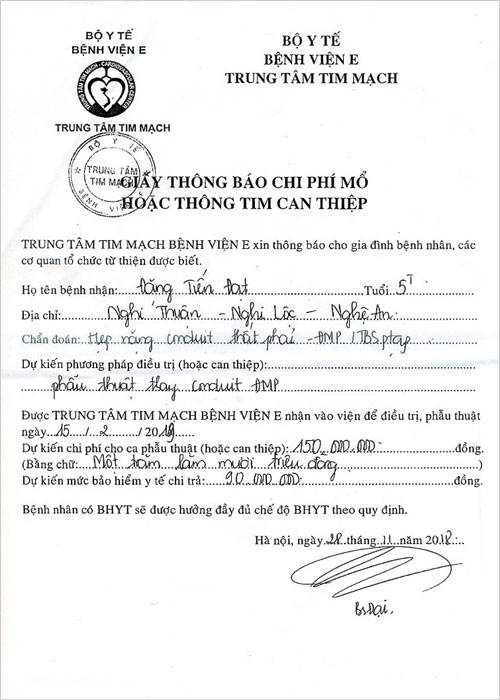 BỘ Y TẾ
BỆNH VIỆN E
TRUNG TÂM TIM MẠCH
BỘ Y TẾ
BỆNH VIỆN E
TRUNG TÂM TIM MẠCH
BỘ Y TẾ
TRUNG TÂM
TIM MẠCH
BỆNH VIỆN E
GIẤY THÔNG BÁO CHI PHÍ MỔ
HOẶC THÔNG TIM CAN THIỆP
TRUNG TÂM TIM MẠCH BỆNH VIỆN E xin thông báo cho gia đình bệnh nhân, các
cơ quan tổ chức từ thiện được biết.
Họ tên bệnh nhân: Đặng Tiến Đạt Tuổi 5T
Địa chỉ: Nghi Thuận - Nghi Lộc - Nghệ An
Chẩn đoán: Hẹp nặng conduit thất phải - ĐMP / TBS ptạp
Dự kiến phương pháp điều trị (hoặc can thiệp):
phẫu thuật thay conduit ĐMP
Được TRUNG TÂM TIM MẠCH BỆNH VIỆN E nhận vào viện để điều trị, phẫu thuật
ngày 15 / 2 / 2019
Dự kiến chi phí cho ca phẫu thuật (hoặc can thiệp): 150.000.000 đồng.
(Bằng chữ: Một trăm năm mươi triệu đồng)
Dự kiến mức bảo hiểm y tế chi trả: 90.000.000 đồng.
Bệnh nhân có BHYT sẽ được hưởng đầy đủ chế độ BHYT theo quy định.
Hà nội, ngày 28 tháng 11 năm 2018
Bs Đại.